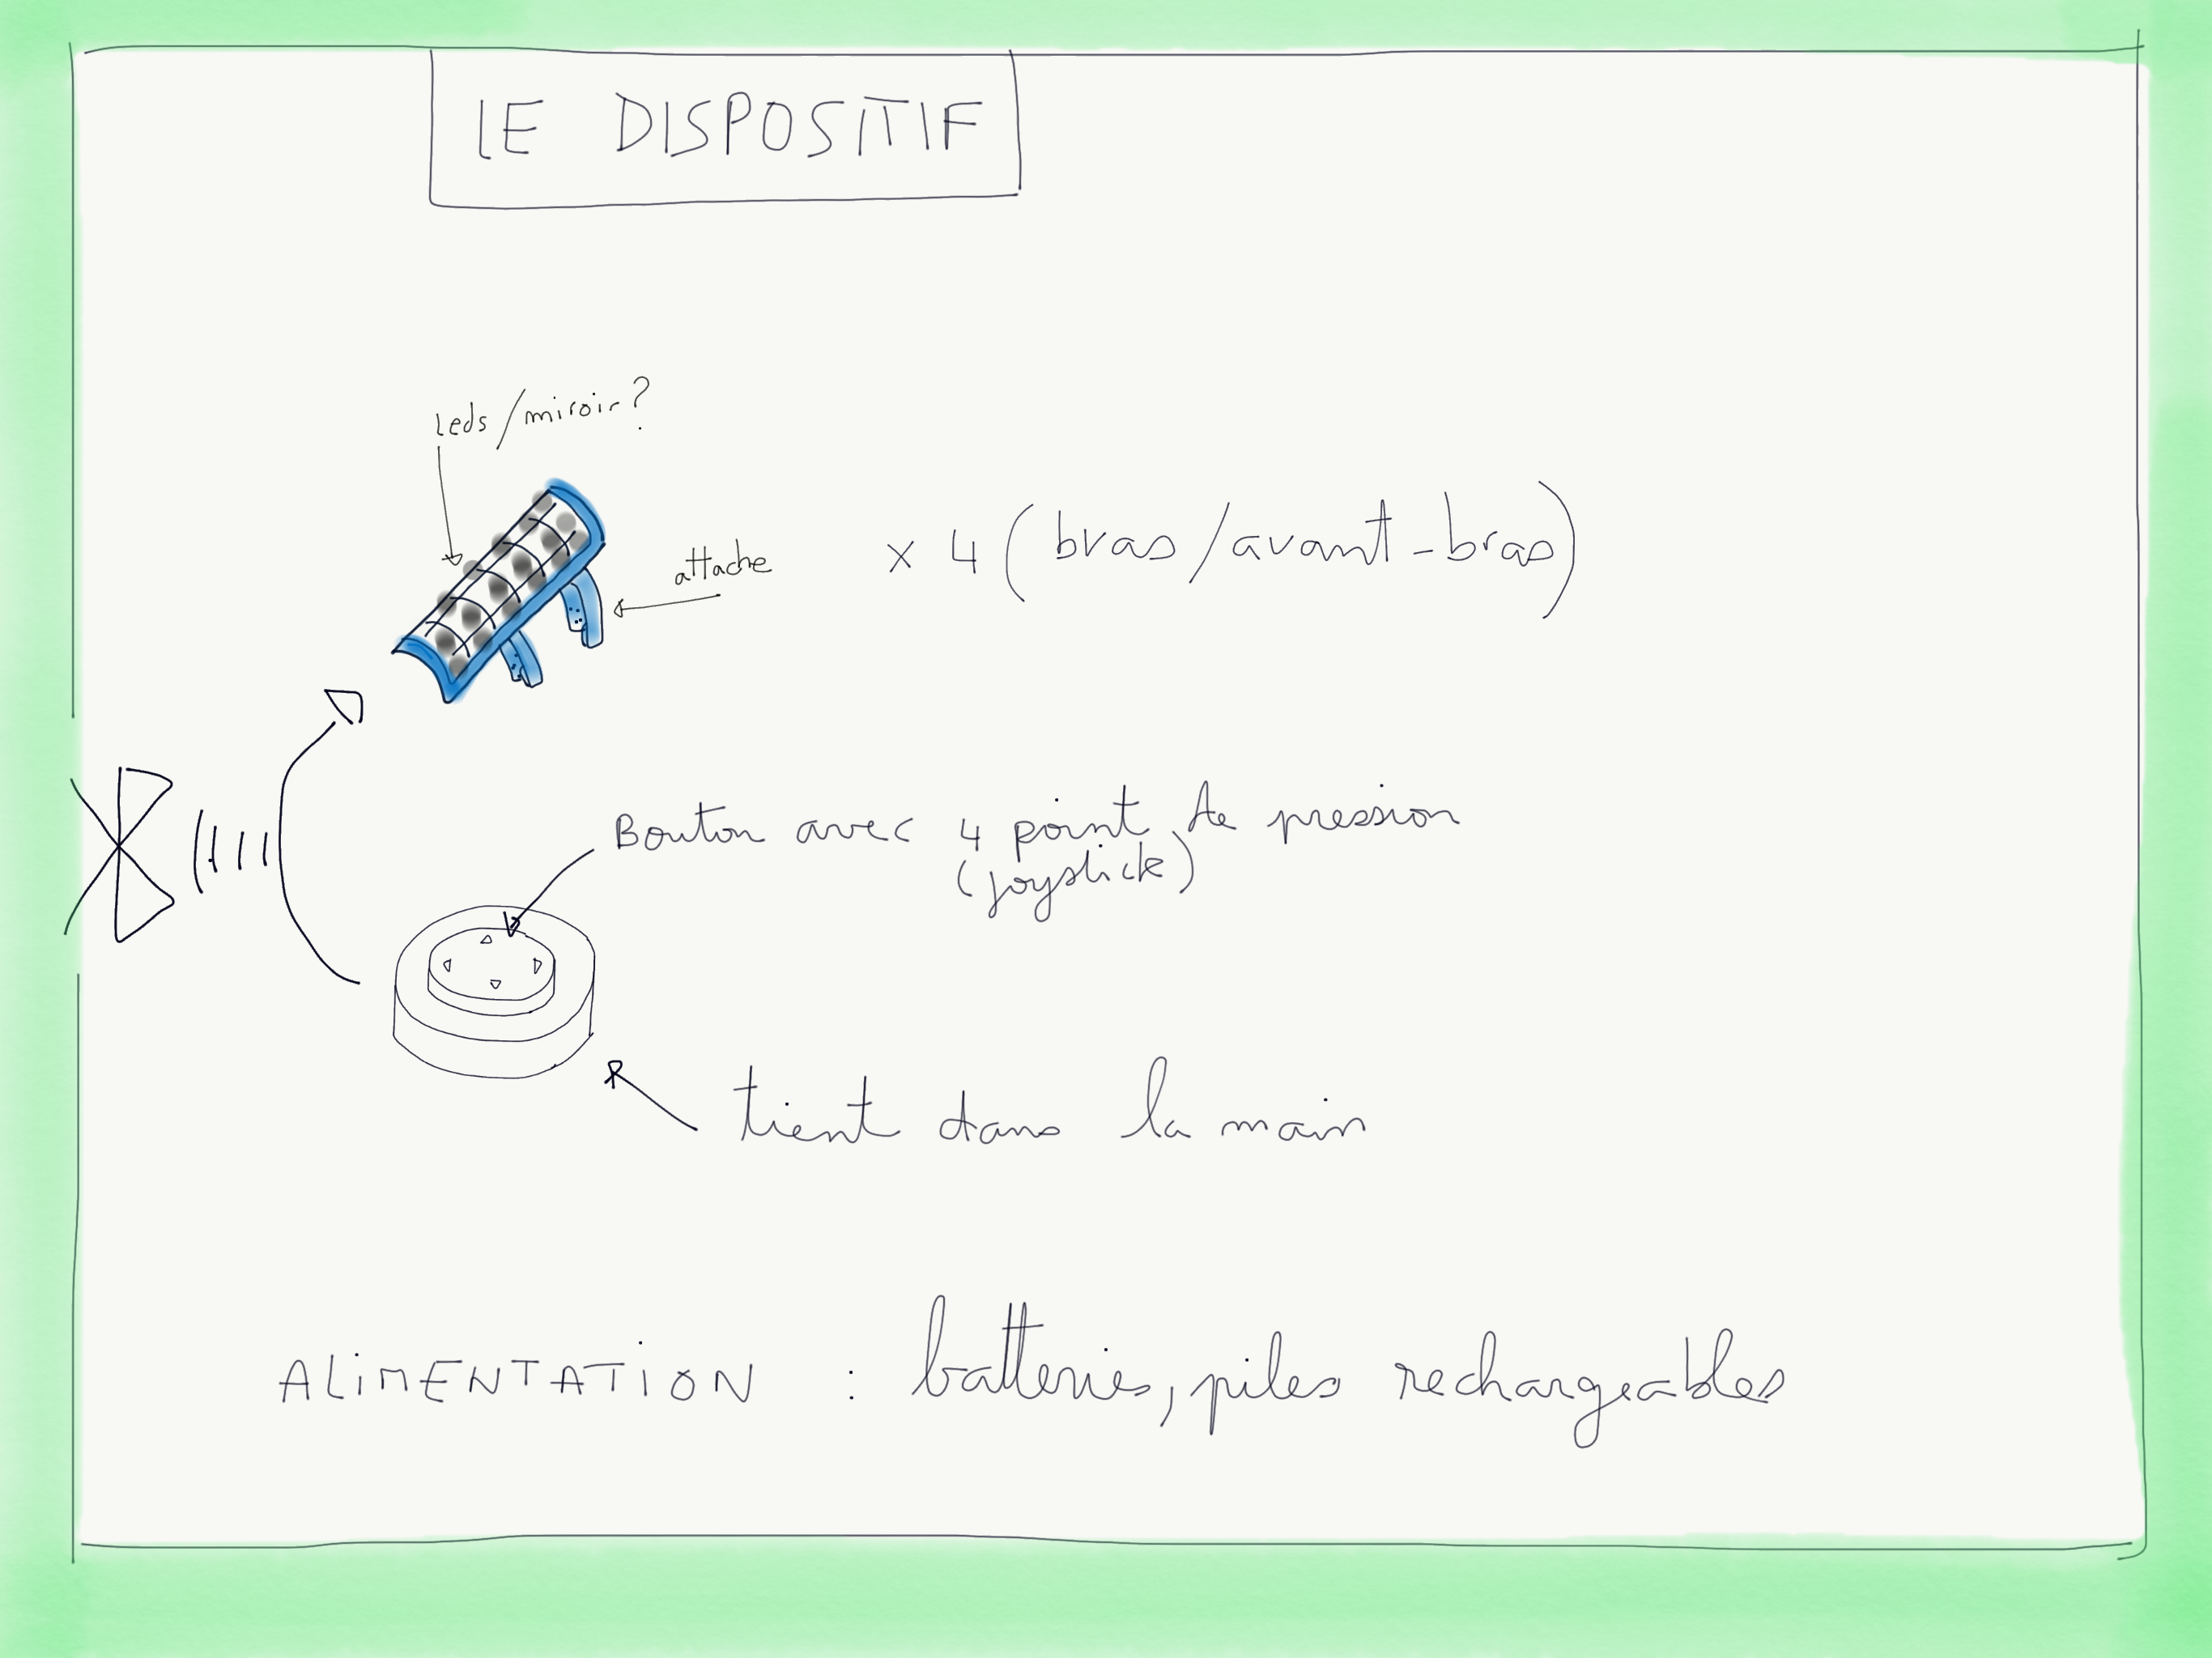 LE DISPOSITIF
Leds/miroir?
attache
x 4 (bras/avant-bras)
Bouton avec 4 point de pression
(joystick)
tient dans la main
ALIMENTATION : batteries, piles rechargeables